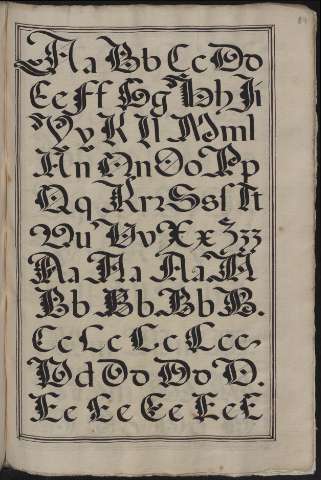 A a B b C c D d
E e F f G g H h J i
Y y K l l M m l
N n N n O o P p
Q q R r 2 S s ſ ſt
V u V v X x Z z z
A a A a A a A
B b B b B b B.
C c C c C c C c c
D d D d D d D.
E e E e E e E e E